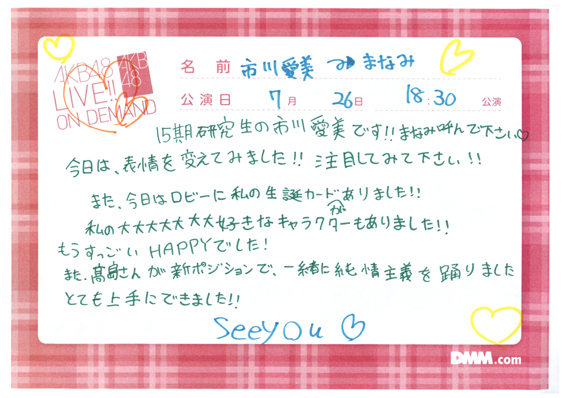 AKB48
LIVE!!
ON DEMAND
AKB
48
名 前 市川愛美 まなみ
公演日 7月 26日 18:30 公演
15期研究生の市川愛美です!!まなみ呼んで下さい♡
今日は、表情を変えてみました!! 注目してみて下さい!!
また、今日はロビーに私の生誕カードがありました!!
私の大大大大大大大好きなキャラクターもありました!!
もうすっごいHAPPYでした!
また、髙島さんが新ポジションで、一緒に純情主義を踊りました
とても上手にできました!!
See you ♡
DMM.com